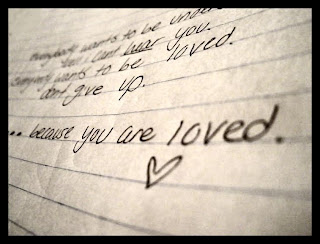 everybody wants to be
well i can't hear you.
everybody wants to be loved.
don't give up.
.. because you are loved.